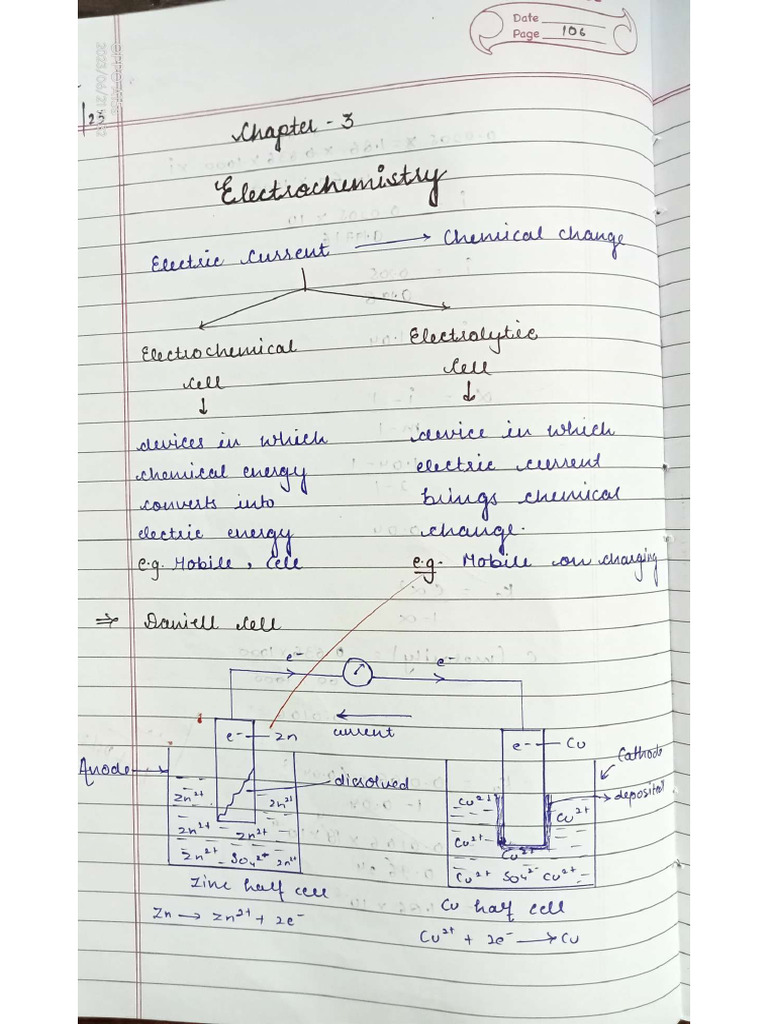 Date
Page 106
/23
Chapter - 3
Electrochemistry
Electric Current → Chemical change
Electrochemical cell
↓
devices in which
chemical energy
converts into
electric energy
e.g. Mobile, Cell
Electrolytic cell
↓
device in which
electric current
brings chemical
change.
e.g. Mobile on charging
⇒ Daniell cell
e- e-
current
e- — Zn
e- — Cu
Anode
Cathode
dissolved
deposited
Zn2+ Zn2+
Zn2+ Zn2+
Zn2+ SO42+ Zn2+
Cu2+ Cu2+
Cu2+ Cu2+
Cu2+ SO42- Cu2+
Zinc half cell
Zn → Zn2+ + 2e-
Cu half cell
Cu2+ + 2e- → Cu